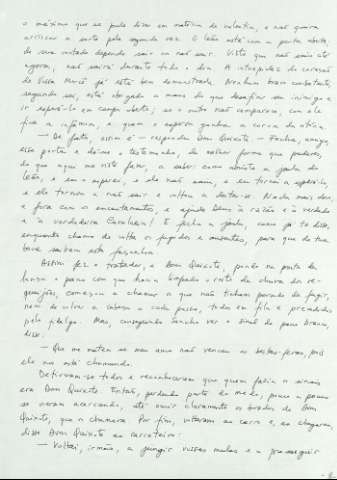 o máximo que se pode dizer em matéria de valentia, e não queira
arriscar a sorte pela segunda vez. O leão está com a porta aberta,
de sua vontade depende sair ou não sair. Visto que não saiu até
agora, não sairá durante todo o dia. A intrepidez do coração
de Vossa Mercê já está bem demonstrada. Nenhum bravo combatente,
segundo sei, está obrigado a mais do que desafiar seu inimigo e
ir esperá-lo em campo aberto; se o outro não comparece, com ele
fica a infâmia, e quem o espera ganha a coroa da vitória.
— De fato, assim é — respondeu Dom Quixote — Fecha, amigo,
essa porta e dá-me o testemunho, da melhor forma que puderes,
do que aqui me viste fazer, a saber: como abriste a jaula do
leão, e eu o esperei, e ele não saiu, e eu tornei a esperá-lo,
e ele tornou a não sair e voltou a deitar-se. Nada mais devo,
e fora com os encantamentos, e ajude Deus à razão e à verdade
e à verdadeira Cavalaria! E fecha a jaula, como já te disse,
enquanto chamo de volta os fugidos e ausentes, para que de tua
boca saibam esta façanha.
Assim fez o tratador, e Dom Quixote, pondo na ponta da
lança o pano com que havia limpado o rosto da chuva dos re-
queijões, começou a chamar os que não tinham parado de fugir,
nem de volver a cabeça a cada passo, todos em fila e precedidos
pelo fidalgo. Mas, conseguindo Sancho ver o sinal do pano branco,
disse:
— Que me matem se meu amo não venceu as bestas-feras, pois
ele nos está chamando.
Detiveram-se todos e reconheceram que quem fazia os sinais
era Dom Quixote. Então, perdendo parte do medo, pouco a pouco
se vieram acercando, até ouvir claramente os brados de Dom
Quixote, que os chamava. Por fim, voltaram ao carro e, ao chegarem,
disse Dom Quixote ao carroceiro:
— Voltai, irmão, a jungir vossas mulas e a prosseguir